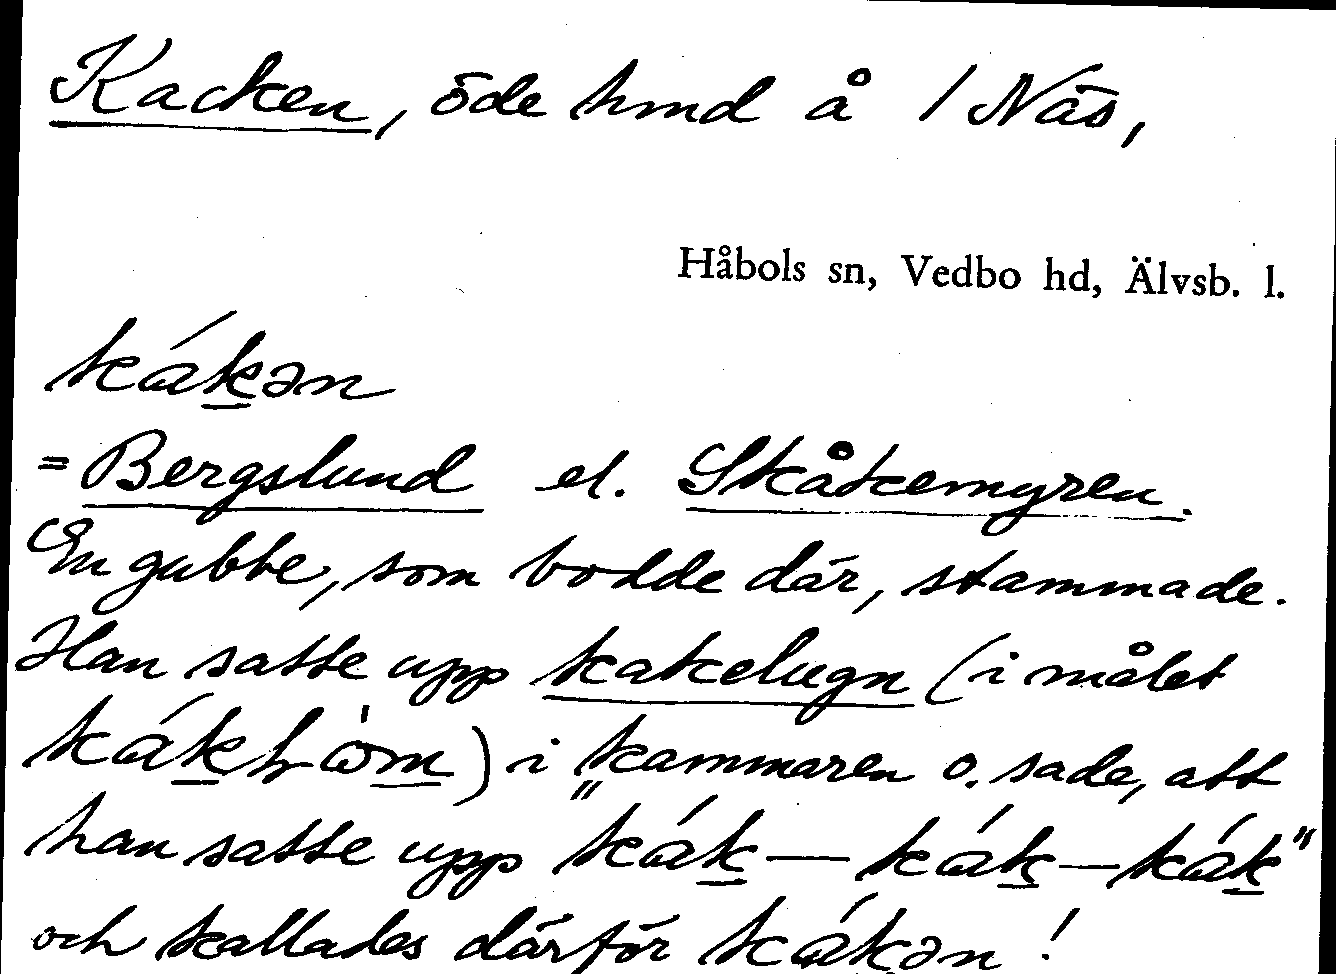 Kacken, öde hmd å 1 Näs,
Håbols sn, Vedbo hd, Älvsb. l.
kák̲ən
= Bergslund el. Skåkemyren.
En gubbe, som bodde där, stammade.
Han satte upp kakelugn (i målet
) i kammaren o. sade, att
han satte upp "kák̲ — kák̲ — kák̲"
och kallades därför kákən!